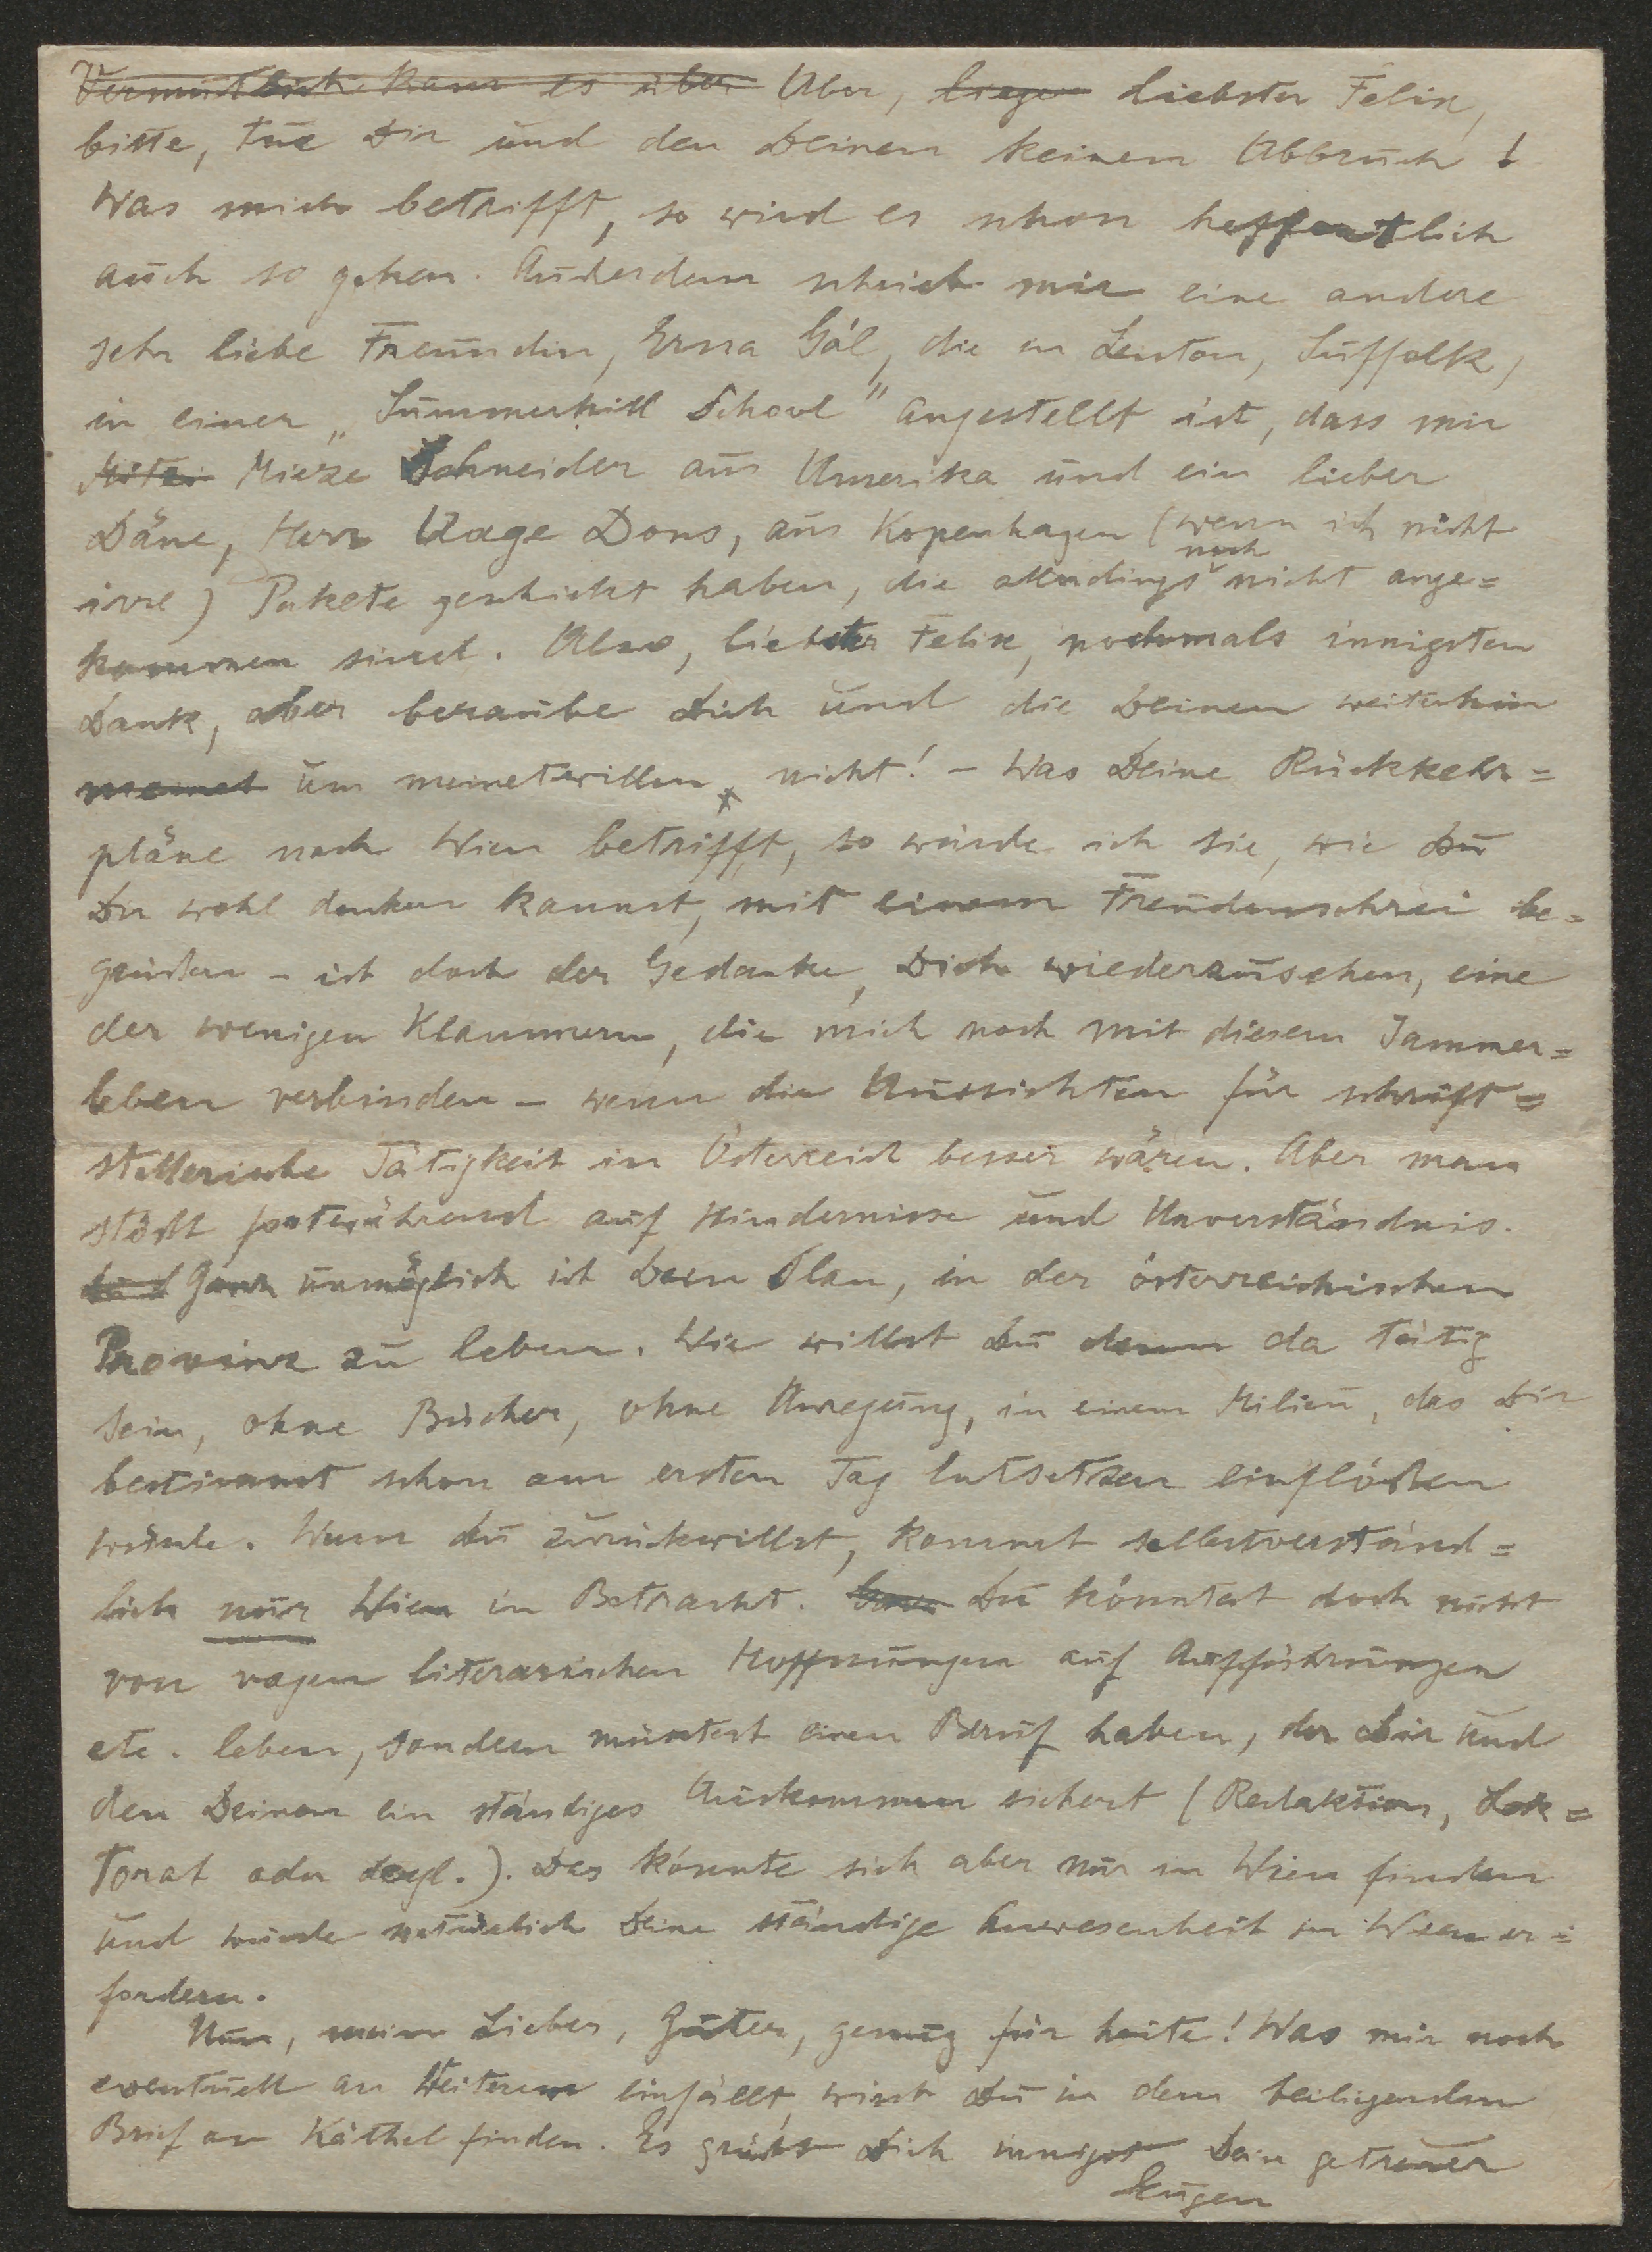 Vermutlich kam es über Aber, liege liebster Felix,
bitte, tue Dir und den Deinen keinen Abbruch!
Was mich betrifft, so wird es schon hoffentlich
auch so gehen. Außerdem schrieb mir eine andere
sehr liebe Freundin, Erna Gál, die in Leiston, Suffolk,
in einer „Summerhill School" angestellt ist, dass mir
Mieze Schneider aus Amerika und ein lieber
Däne, Herr Aage Dons, aus Kopenhagen (wenn ich nicht
irre) Pakete geschickt haben, die allerdings noch nicht ange=
kommen sind. Also, liebster Felix, nochmals innigsten
Dank, aber beraube Dich und die Deinen weiterhin
meinet um meinetwillen nicht! – Was Deine Rückkehr=
pläne nach Wien betrifft, so würde ich sie, wie Du
Dir wohl denken kannst, mit einem Freudenschrei be=
grüßen – ist doch der Gedanke, Dich wiederzusehen, eine
der wenigen Klammern, die mich noch mit diesem Jammer=
leben verbinden – wenn die Aussichten für schrift=
stellerische Tätigkeit in Österreich besser wären. Aber man
stößt fortwährend auf Hindernisse und Unverständnis.
Ganz unmöglich ist Dein Plan, in der österreichischen
Provinz zu leben. Wie willst Du denn da tätig
sein, ohne Bücher, ohne Anregung, in einem Milieu, das Dir
bestimmt schon am ersten Tag Entsetzen einflößen
würde. Wenn Du zurückwillst, kommt selbstverständ=
lich nur Wien in Betracht. Du könntest doch nicht
von vagen literarischen Hoffnungen auf Aufführungen
etc. leben, sondern müsstest einen Beruf haben, der Dir und
den Deinen ein ständiges Auskommen sichert (Redaktion, Lek=
torat oder dergl.). Das könnte sich aber nur in Wien finden
und würde natürlich Deine ständige Anwesenheit in Wien er=
fordern.
Nun, mein Lieber, Guter, genug für heute! Was mir noch
eventuell an Weiterem einfällt, wirst Du in dem beiliegenden
Brief an Käthel finden. Es grüßt Dich innigst Dein getreuer
Eugen